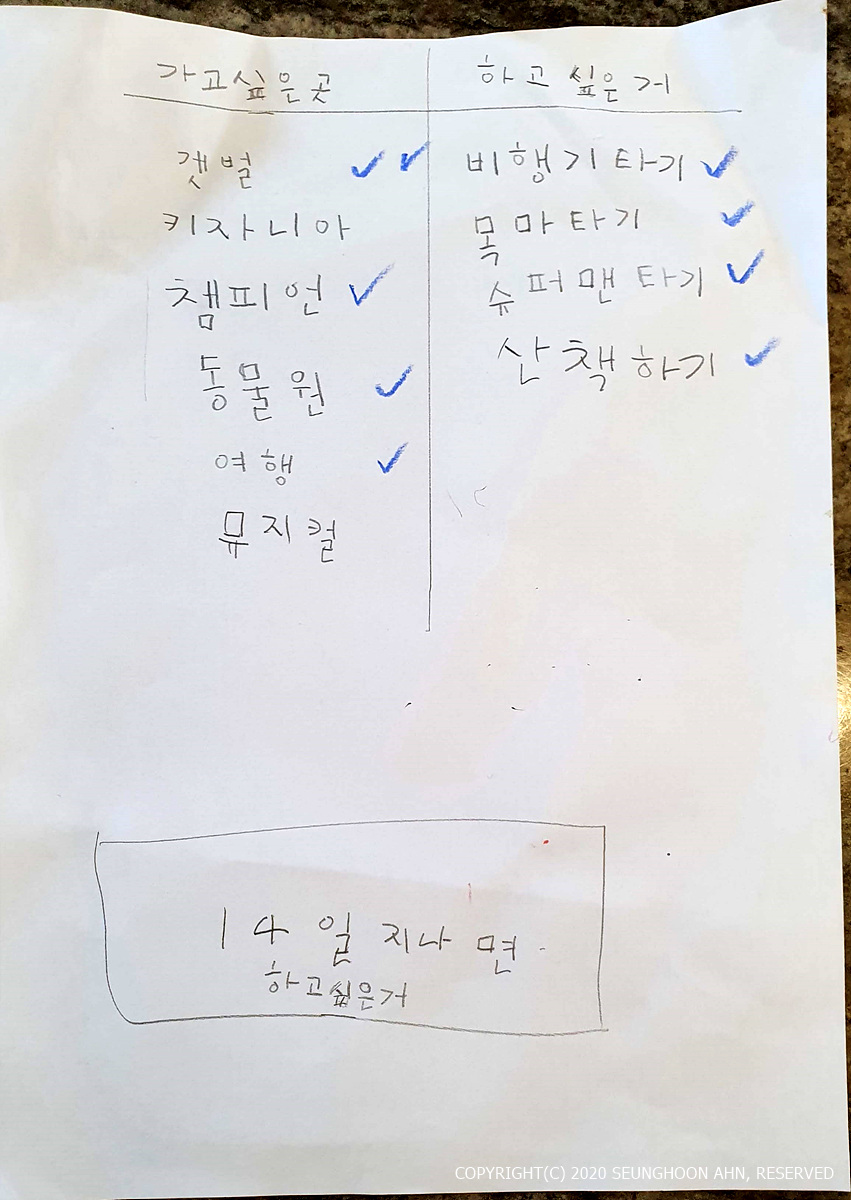 가고싶은곳
겟벌
키자니아
챔피언
동물원
여행
뮤지컬
하고 싶은 거
비행기타기
목마타기
슈퍼맨 타기
산책하기
14일 지나면
하고싶은거
COPYRIGHT(C) 2020 SEUNGHOON AHN, RESERVED